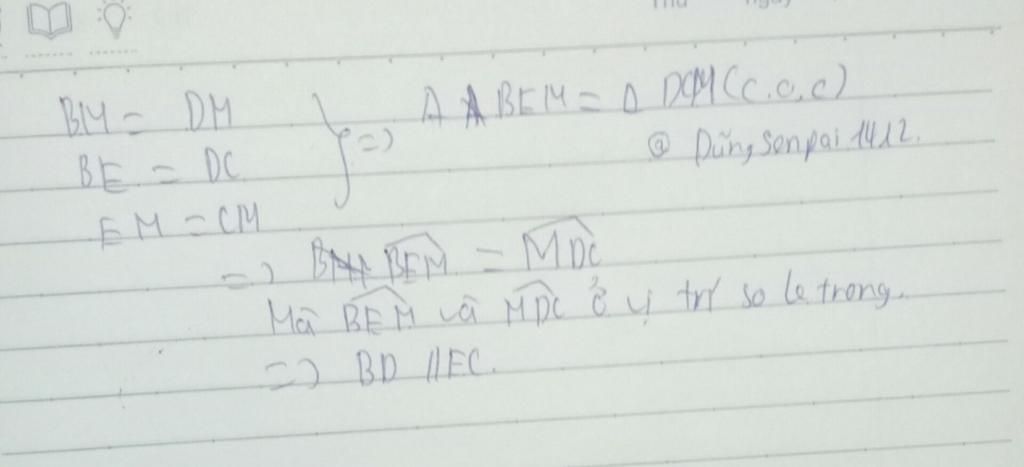 BM = DM
BE = DC
EM = CM
} => Δ BEM = Δ DCM (c.c.c)
@ Dũng Senpai 1412.
=> BEM = MDC
Mà BEM và MDC ở vị trí so le trong.
=> BD // EC.